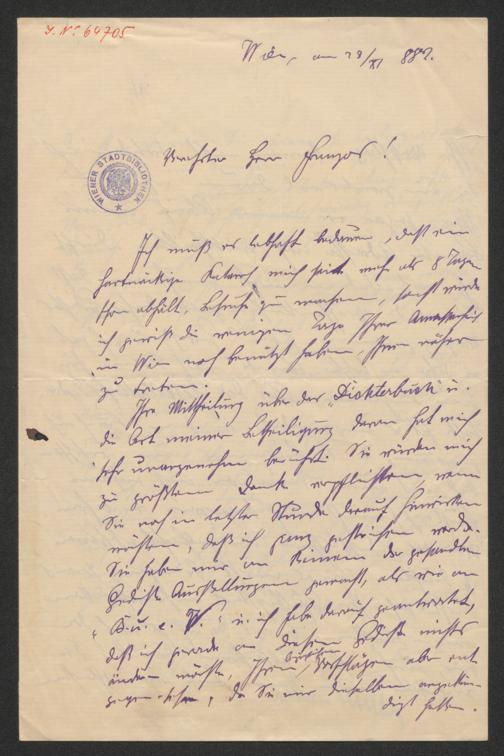 J. N. 64705
Wien, am 28/XI 882.
WIENER STADTBIBLIOTHEK
Verehrter Herr Franzos!
Ich muß es lebhaft bedauern, daß ein
hartnäckiger Katarrh mich seit mehr als 8 Tagen
schon abhält, Besuche zu machen, sonst würde
ich gewiß die wenigen Tage Ihrer Anwesenheit
in Wien noch benützt haben, Ihnen näher
zu treten.
Ihre Mittheilung über das „Dichterbuch" u.
die Art meiner Betheiligung daran hat mich
sehr unangenehm berührt. Sie würden mich
zu größtem Dank verpflichten, wenn
Sie noch in letzter Stunde darauf hinwirken
möchten, daß ich ganz gestrichen werde.
Sie haben mir an Keinem der gesandten
Gedichte Ausstellungen gemacht, als wie an
u. ich habe darauf geantwortet,
daß ich gerade an diesem Gedichte nichts
ändern möchte, Ihren Vorschlägen aber ent
gegen sehe, da Sie mir dieselben angekün-
digt hatten.